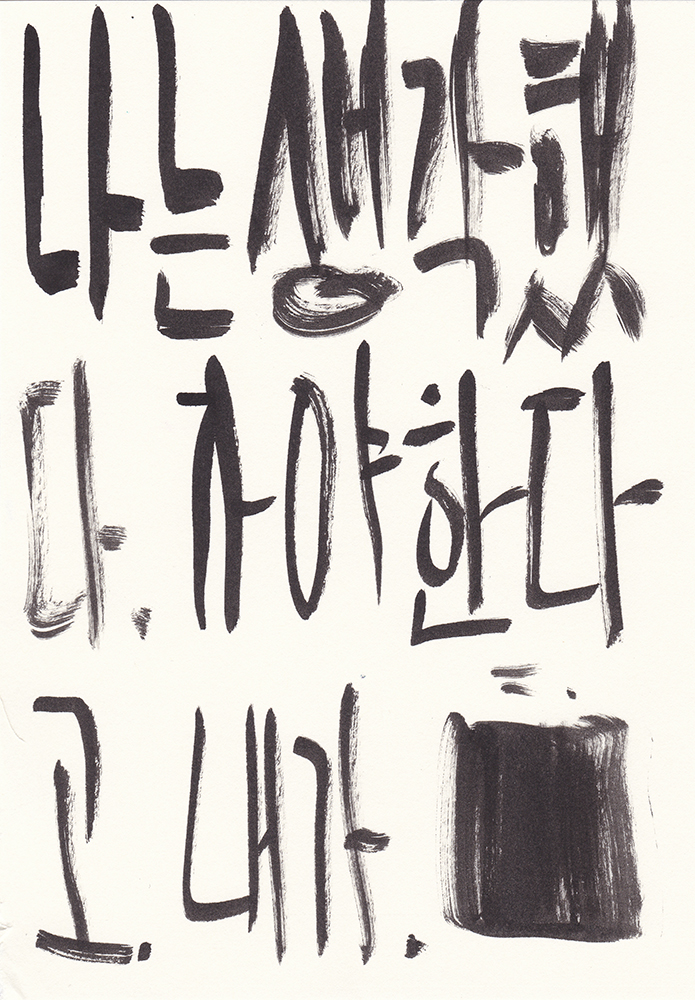 나는 생각했
다. 가야한다
고. 내가.